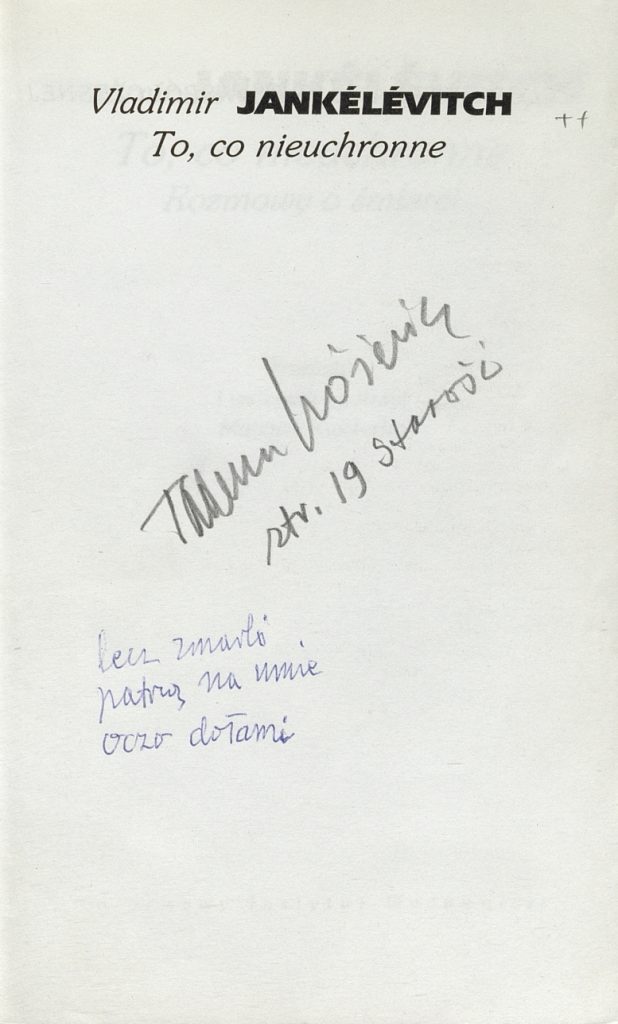 Vladimir JANKÉLÉVITCH
++
To, co nieuchronne
Tadeusz Różewicz
str. 19 starość
lecz zmarli
patrzą na mnie
oczo dołami